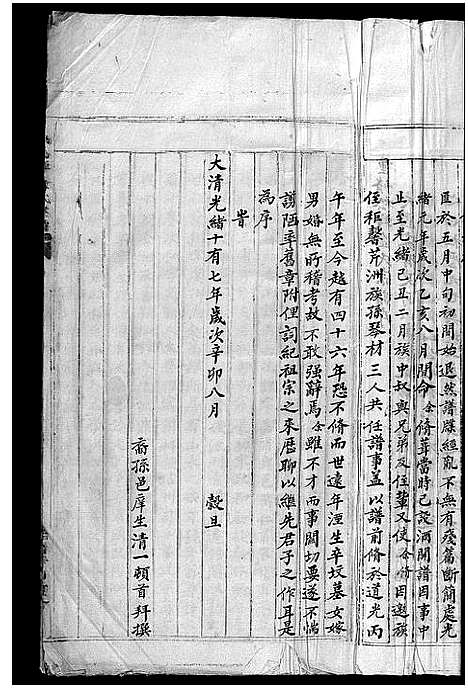 匪於五月中旬初間始退然譜牒經亂不無有殘篇斷簡處光
緒元年歲次乙亥八月間命余脩葺當時已設酒開譜因事中
止至光緒己丑二月族中叔與兄弟及侄輩又使余脩因邀族
侄秬馨芹洲族孫琴材三人共任譜事蓋以譜前脩於道光丙
午年至今越有四十六年恐不脩而世遠年湮生卒坟墓女嫁
男婚無所稽考故不敢强辭焉余雖不才而事關切要遂不惴
謭陋率舊章附俚詞紀祖宗之來歷聊以繼先君子之作耳是
為序
旹
大清光緒十有七年歲次辛卯八月 穀旦
裔孫邑庠生清一頓首拜撰